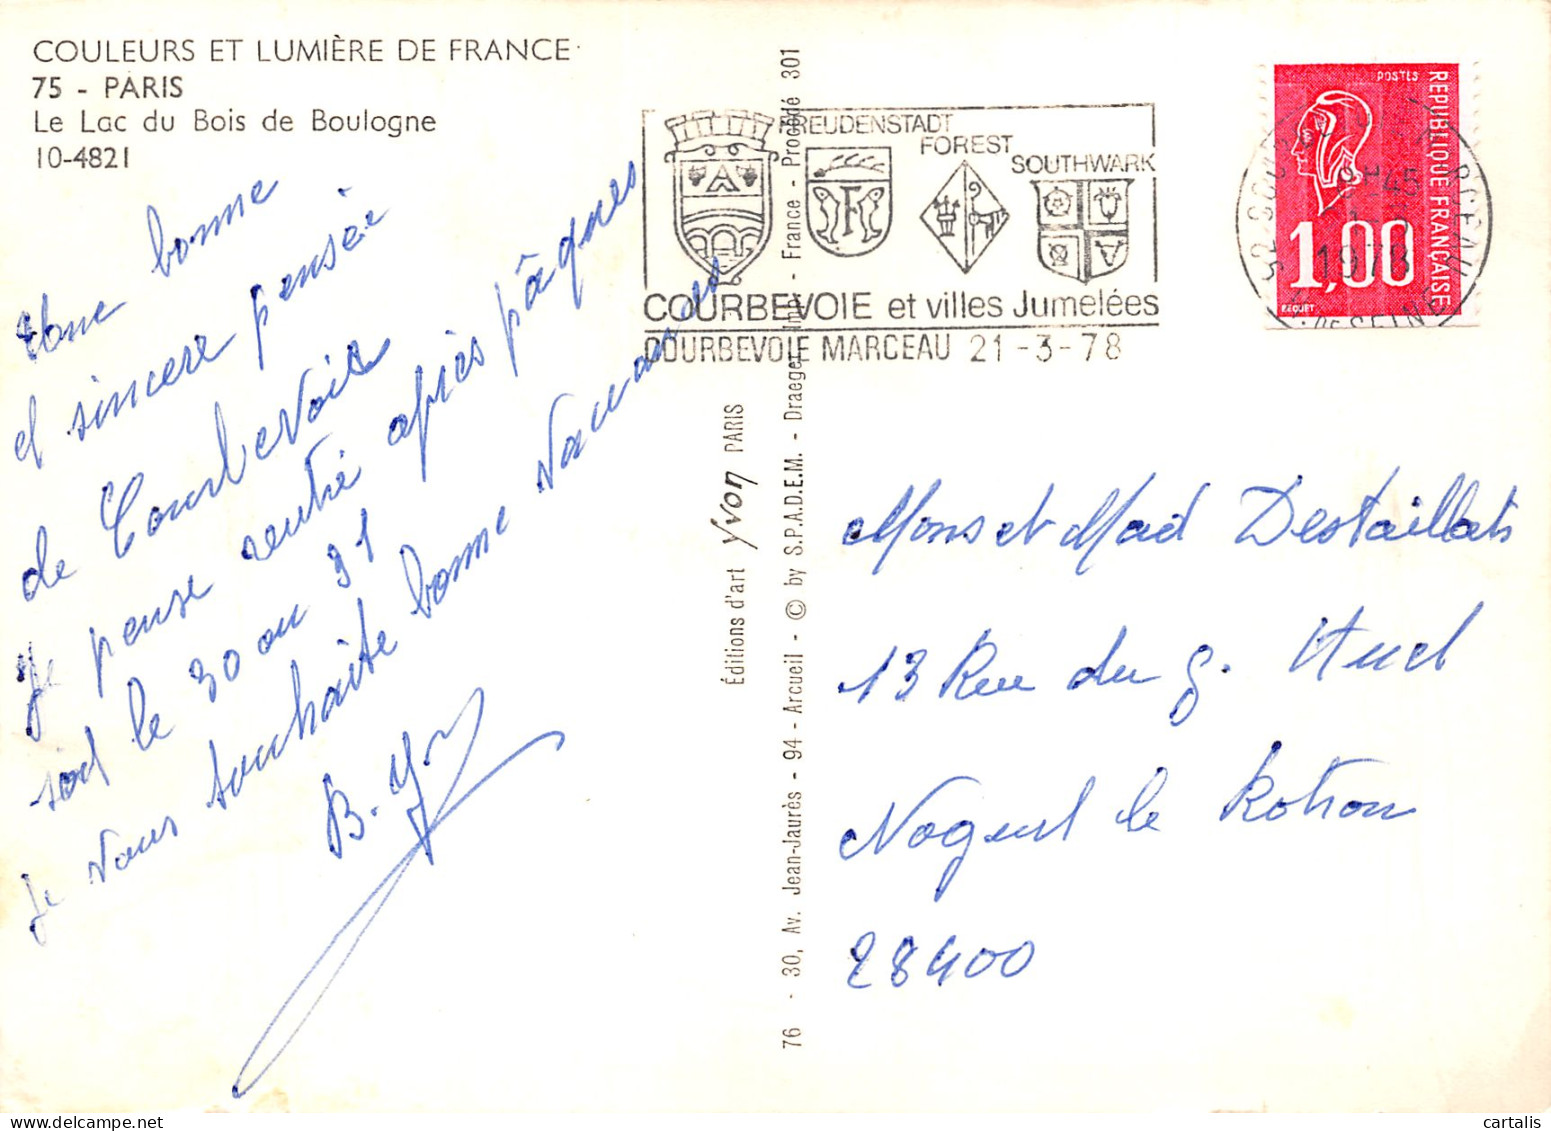 COULEURS ET LUMIÈRE DE FRANCE
75 - PARIS
Le Lac du Bois de Boulogne
10-4821
Une bonne
et sincere pensée
de Courbevoie
Je pense rentré après pâques
soit le 30 ou 31
Je vous souhaite bonne vacances
B.
Éditions d'art Yvon PARIS
76 - 30, Av. Jean-Jaurès - 94 - Arcueil - © by S.P.A.D.E.M. - Draeger Imp. - France - Procédé 301
FREUDENSTADT
FOREST
SOUTHWARK
A
F
COURBEVOIE et villes Jumelées
COURBEVOIE MARCEAU 21-3-78
POSTES
REPUBLIQUE FRANÇAISE
1,00
BEQUET
1978
Mons et Mad Destaillats
13 Rue du g.
Nogent le Rotrou
28400
cartalis